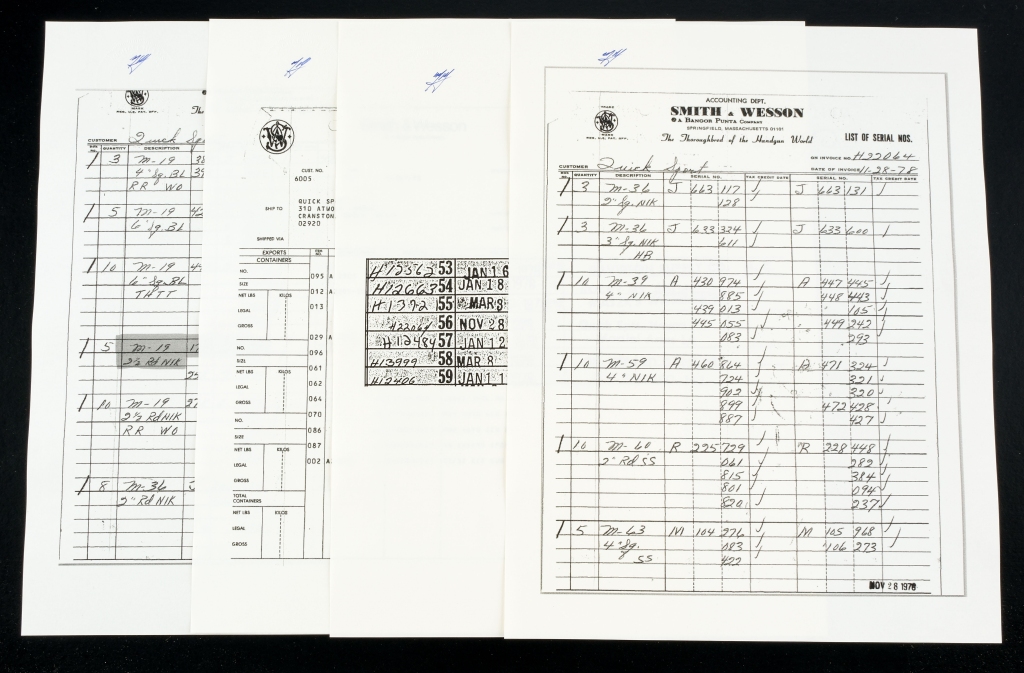 CUSTOMER Quick Sp
QUANTITY DESCRIPTION
3 M-19
4" Sq. BL
RR WO
5 M-19
6" Sq. BL
10 M-19
6" Sq. BL
THTT
5 M-19
2½ Rd NIK
10 M-19
2½ Rd NIK
RR WO
8 M-36
2" Rd NIK
CUST. NO.
6005
SHIP TO
QUICK SP
310 ATWO
CRANSTON
02920
SHIPPED VIA
EXPORTS
CONTAINERS
NO.
SIZE
NET LBS KILOS
LEGAL
GROSS
NO.
SIZE
NET LBS KILOS
LEGAL
GROSS
NO.
SIZE
NET LBS KILOS
LEGAL
GROSS
TOTAL
CONTAINERS
NET LBS KILOS
LEGAL
GROSS
095 A
012 A
013
029 A
096
061
062
064
070
086
087
002 A
H12562 53 JAN 16
H12663 54 JAN 18
H13921 55 MAR 8
H22064 56 NOV 28
H12484 57 JAN 12
H13999 58 MAR 8
H12406 59 JAN 11
ACCOUNTING DEPT.
SMITH & WESSON
A BANGOR PUNTA COMPANY
SPRINGFIELD, MASSACHUSETTS 01101
The Thoroughbred of the Handgun World
LIST OF SERIAL NOS.
ON INVOICE NO. H22064
CUSTOMER Quick Sport
DATE OF INVOICE 11-28-78
QUANTITY DESCRIPTION SERIAL NO. TAX CREDIT DATE SERIAL NO. TAX CREDIT DATE
3 M-36 J 663 117 J 663 131
2" Sq. NIK 128
3 M-36 J 633 324 J 633 600
3" Sq. NIK 611
HB
10 M-39 A 430 974 A 447 445
4" NIK 885 448 443
439 013 105
445 055 449 242
083 293
10 M-59 A 460 864 A 471 324
4" NIK 724 321
902 320
899 472 428
887 427
10 M-60 R 225 729 R 228 448
2" Rd SS 061 282
815 384
801 094
820 237
5 M-63 M 104 276 M 105 968
4" Sq. 083 106 273
SS 422
NOV 28 1978